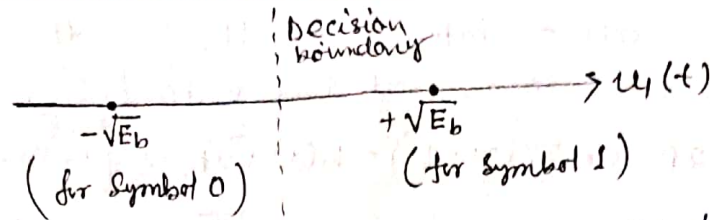 Decision
boundary
u₁(t)
-√Eb
+√Eb
(for symbol 0)
(for symbol 1)